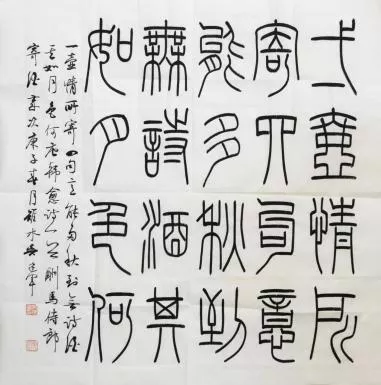 弌壺情所
寄四句意
能多秋到
無詩酒其
如月色何
一壺情所寄四句意能多秋到無詩酒
其如月色何唐韓愈詩酬馬侍郎
寄酒歲次庚子春月